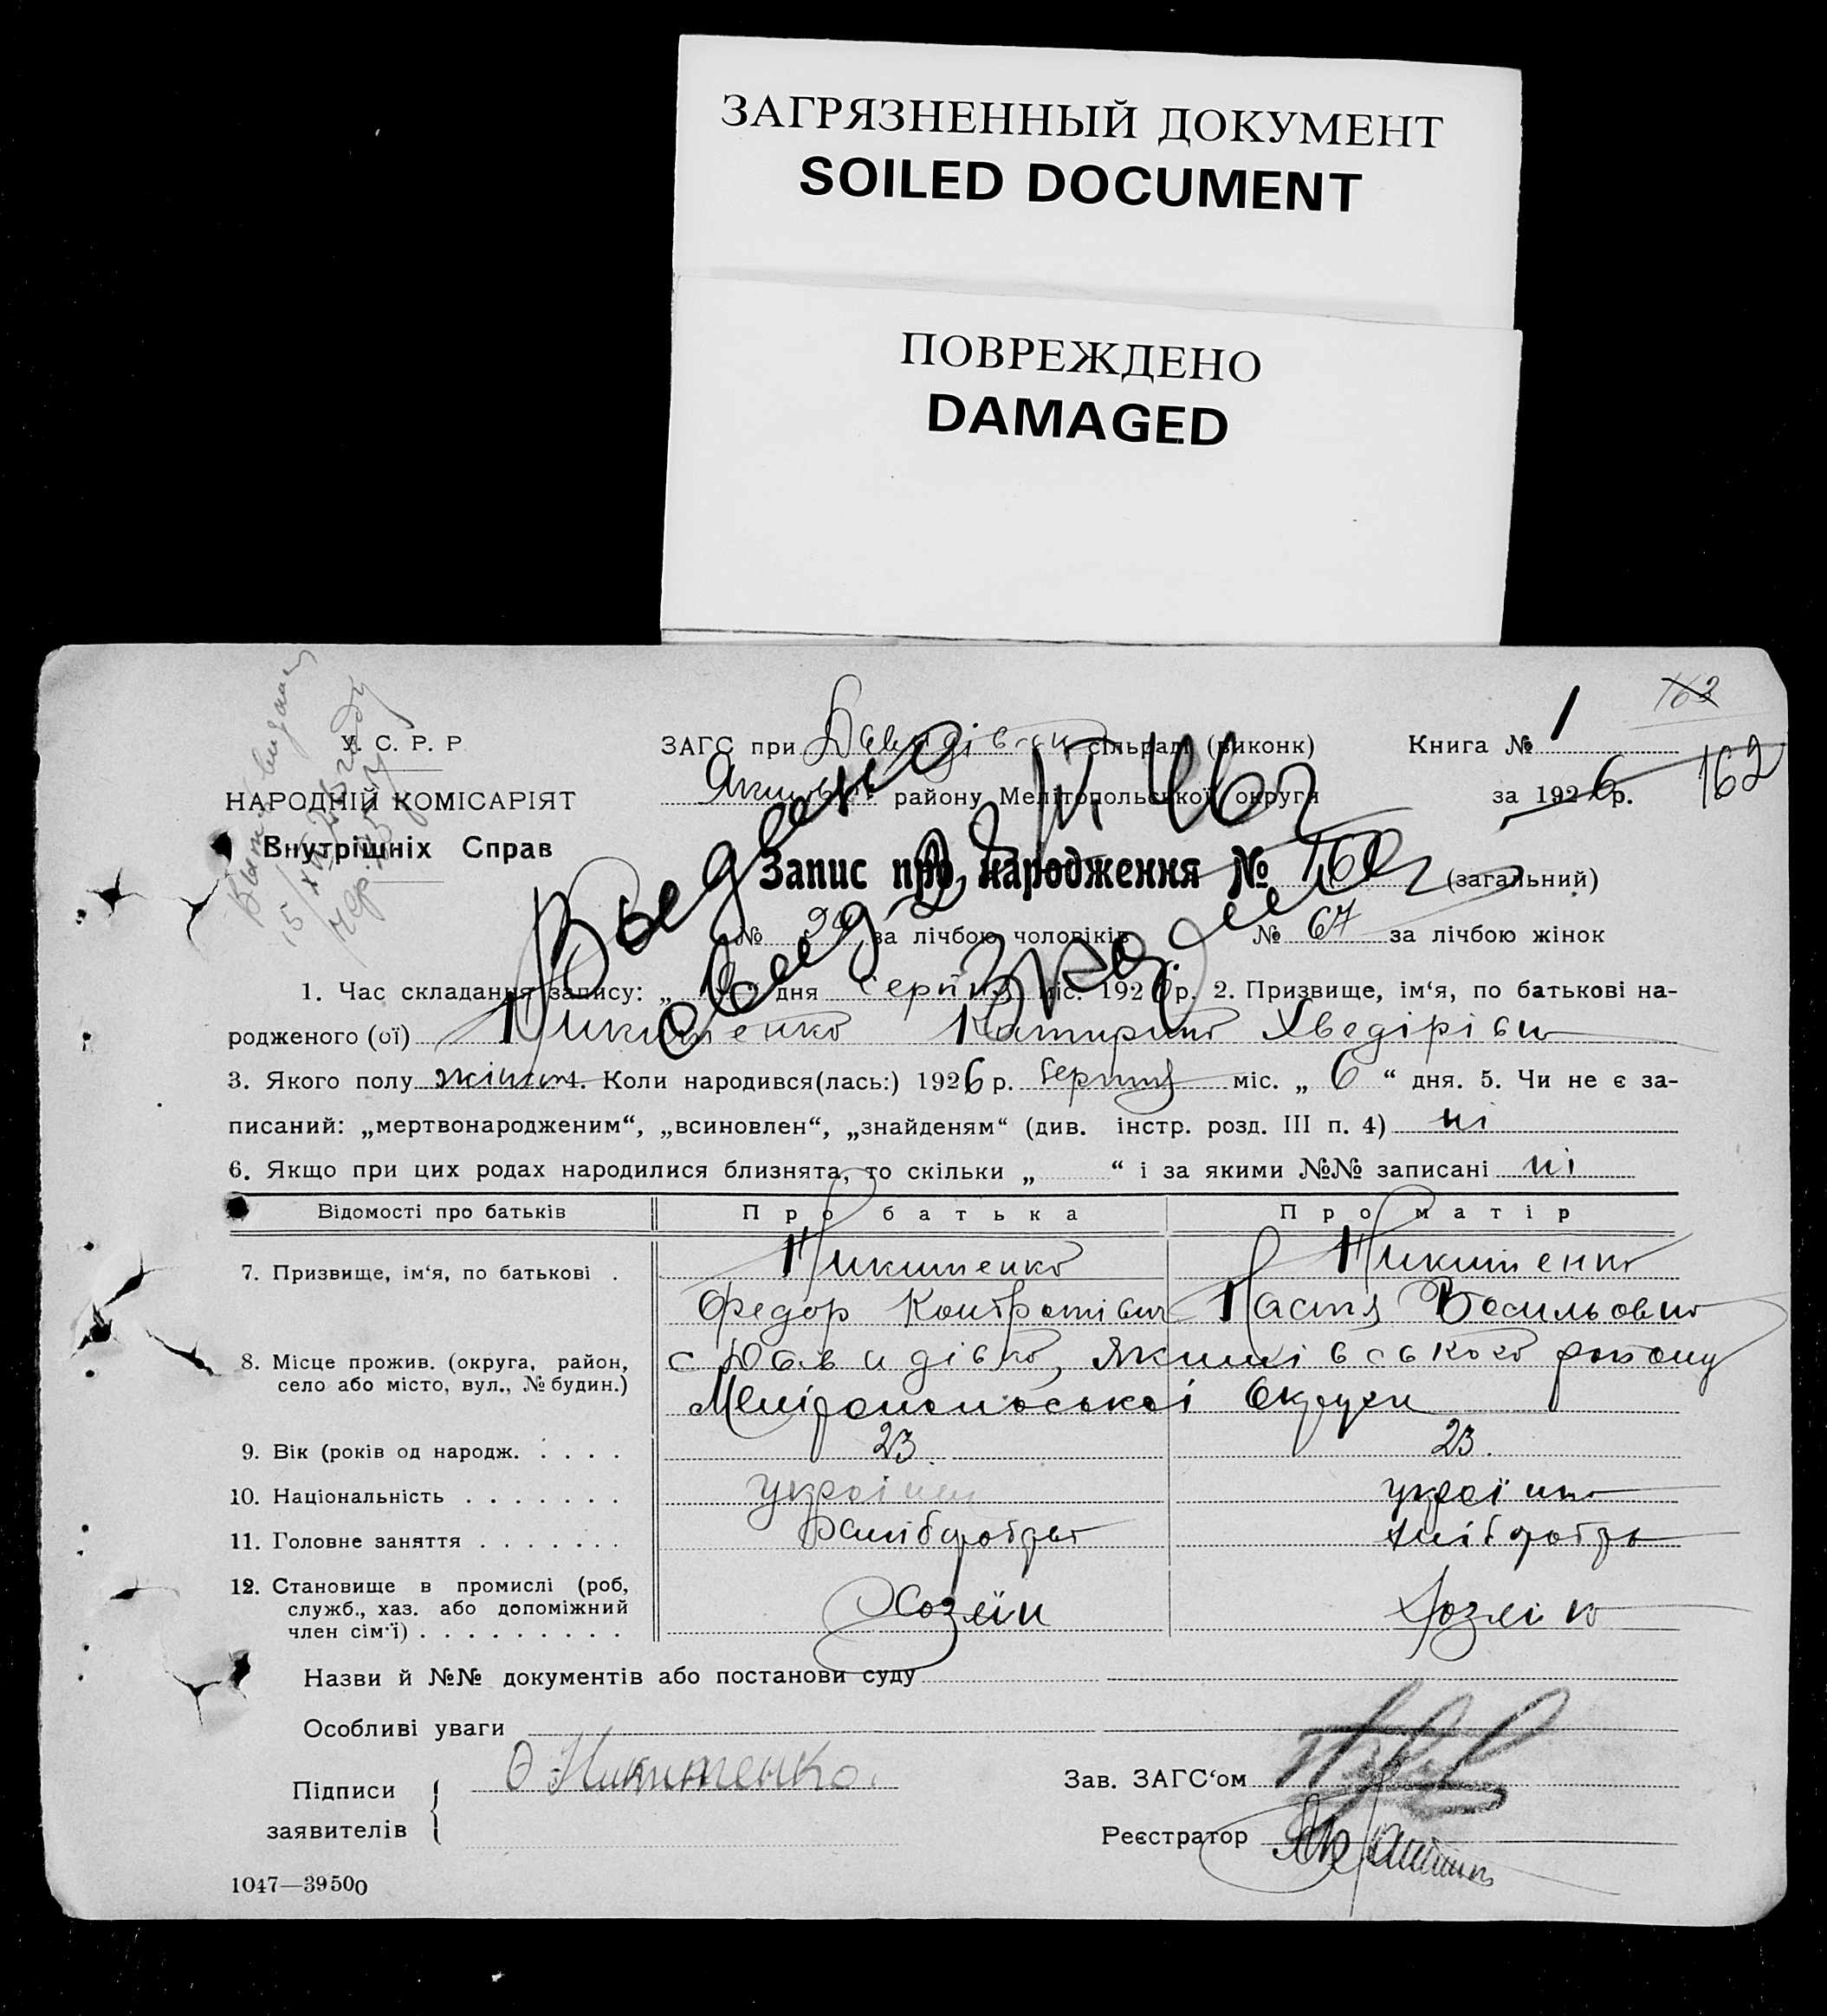 ЗАГРЯЗНЕННЫЙ ДОКУМЕНТ
SOILED DOCUMENT
ПОВРЕЖДЕНО
DAMAGED
163
У. С. Р. Р
ЗАГС при Давидівськ сільраді (виконк)
Книга № 1
НАРОДНІЙ КОМІСАРІЯТ
Якимівськ району Мелітопольської округи
за 1926 р. 162
Внутрішніх Справ
Запис про народження № 160 (загальний)
№ за лічбою чоловіків № 67 за лічбою жінок
1. Час складання запису: „ “ дня серпня міс. 1926 р. 2. Призвище, ім‘я, по батькові на-
родженого (ої) Никитенко Катирина Хведірівна
3. Якого полу жіноч 4. Коли народився(лась:) 1926 р. Серпня міс. „ 6 “ дня. 5. Чи не є за-
писаний: „мертвонародженим“, „всиновлен“, „знайденям“ (див. інстр. розд. III п. 4) ні
6. Якщо при цих родах народилися близнята, то скільки „ “ і за якими №№ записані ні
Відомості про батьків Про батька Про матір
7. Призвище, ім‘я, по батькові . Никитенко Никитенко
Федор Контратівич Настя Васильовна
8. Місце прожив. (округа, район, с Давидівка, Якимівського району
село або місто, вул., № будин.) Мелітопольської Округи
9. Вік (років од народж. . . . . 23 23
10. Національність . . . . . . . україн україн
11. Головне заняття . . . . . . . хліборобст хлібороб
12. Становище в промислі (роб,
служб., хаз. або допоміжний Хозяїн Хозяйка
член сім‘ї) . . . . . . . . .
Назви й №№ документів або постанови суду
Особливі уваги
Підписи Ф Никитенко.
заявителів
Зав. ЗАГС‘ом
Реєстратор
1047—39500